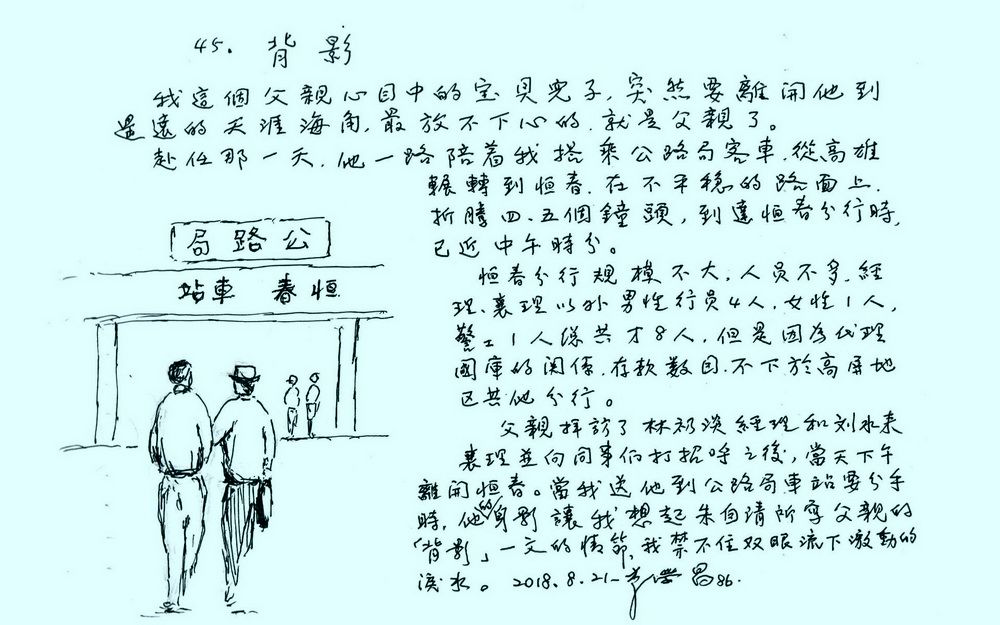 45. 背影
我這個父親心目中的宝貝兒子，突然要離開他到
遙遠的天涯海角，最放不下心的，就是父親了。
赴任那一天，他一路陪着我搭乘公路局客車，從高雄
輾轉到恒春，在不平穩的路面上，
折騰四、五個鐘頭，到達恒春分行時，
已近中午時分。
恒春分行規模不大，人員不多，經
理、襄理以外男性行員4人，女性1人，
警工1人總共才8人，但是因為代理
國庫的関係，存款数目，不下於高屏地
区其他分行。
父親拜訪了林初淡經理和刘水来
襄理並向同事们打招呼之後，當天下午
離開恒春。當我送他到公路局車站要分手
時，他的身影讓我想起朱自清所寫父親的
「背影」一文的情節，我禁不住双眼流下激動的
淚水。2018.8.21 86.
局路公
站車 春恒